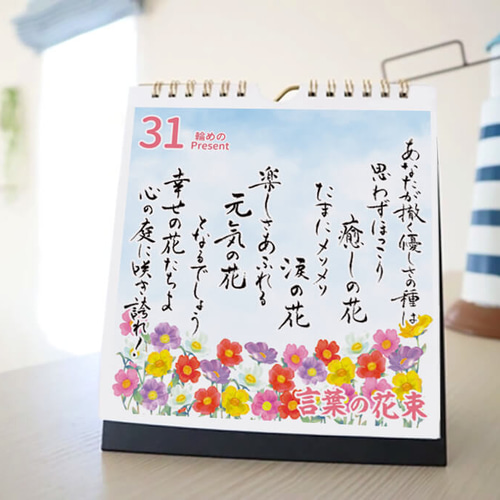 31
輪めの
Present
あなたが撒く優しさの種は
思わずほっこり
癒しの花
たまにメソメソ
涙の花
楽しさあふれる
元気の花
となるでしょう
幸せの花たちよ
心の庭に咲き誇れ!
言葉の花束